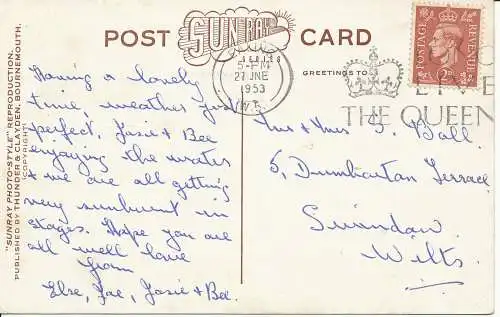 POST
SUNRAY
SERIES
CARD
GREETINGS TO
5-PM
27 JNE
1953
LONG
LIVE
THE QUEEN
POSTAGE
REVENUE
2D
"SUNRAY PHOTO-STYLE" REPRODUCTION.
PUBLISHED BY THUNDER & CLAYDEN, BOURNEMOUTH.
(COPYRIGHT)
Having a lovely
time, weather just
perfect, Josie & Bee
enjoying the water
& we are all getting
very sunburnt in
stages. Hope you are
all well love
from
Else, Joe, Josie & Bee.
Mr & Mrs G. Ball.
5, Dumbarton Terrace
Swindon.
Wilts.